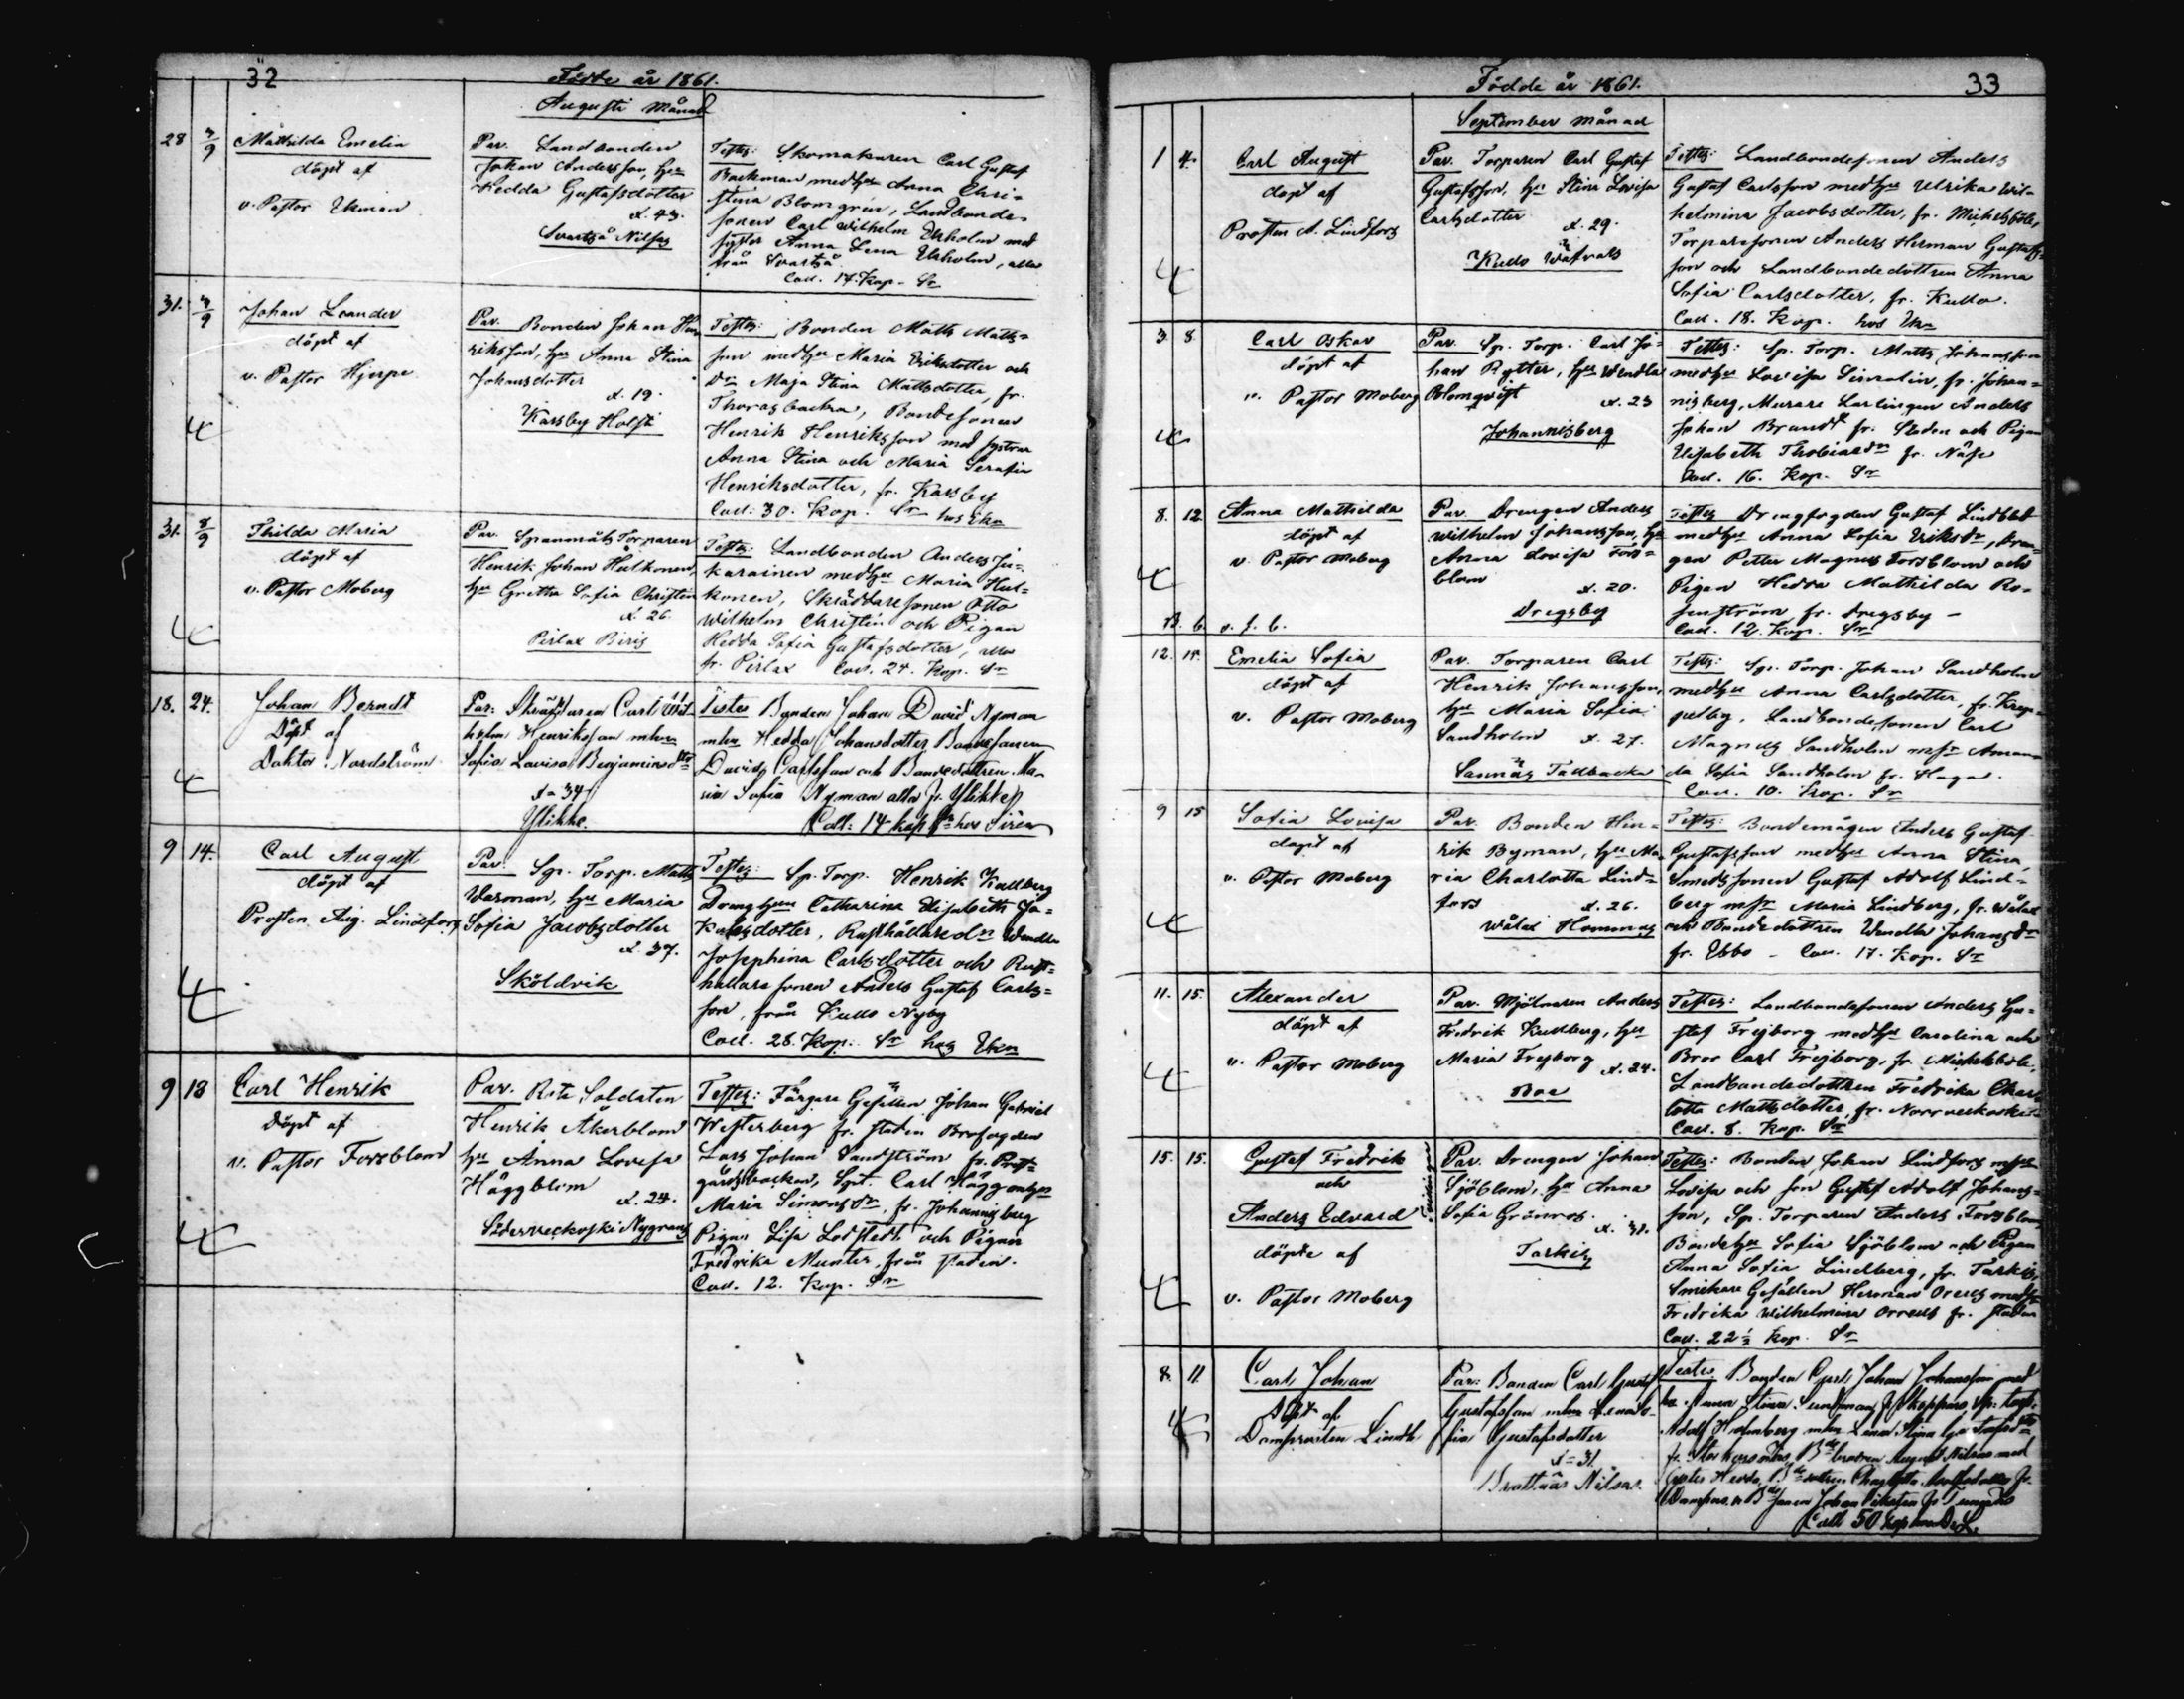 32
Födde år 1861.
Augusti månad
28 7/9
Mathilda Emelia
döpt af
v. Pastor Ekman
Par. Landbonden
Johan Andersson, hu
Hedda Gustafsdotter
x. 43.
Svartså Nilsas
Testes: Skomakaren Carl Gustaf
Backman medhu Anna Chri-
stina Blomgrén, Landbonde-
sonen Carl Wilhelm Ekholm med
syster Anna Lena Ekholm, alla
från Svartså
Coll. 17. Kop. Sr
31. 7/9
Johan Leander
döpt af
v. Pastor Hjerpe
Par. Bonden Johan Hen-
riksson, hu Anna Stina
Johansdotter
x. 19.
Karsby Holsti
Testes: Bonden Matts Matts=
son medhu Maria Eriksdotter och
Dn Maja Stina Mattsdotter, fr.
Thorasbacka, Bondesonen
Henrik Henriksson med systrar
Anna Stina och Maria Serafia
Henriksdotter, fr. Karsby
Coll. 30. Kop. Sr hos Ekn
31. 8/9
Thilda Maria
döpt af
v. Pastor Moberg
Par. Spanmåls Torparen
Henrik Johan Hulkonen,
hu Gretha Sofia Christin
x. 26.
Pirlax Biris
Testes: Landbonden Anders Ju-
karainen medhu Maria Hul=
konen, Skräddaresonen Otto
Wilhelm Christin och Pigan
Hedda Sofia Gustafsdotter, alla
fr. Pirlax Coll. 24. Kop. Sr
18. 24.
Johan Berndt
Döpt af
Doktor Nordström
Par: Skräddaren Carl Wil-
helm Henriksson mhu
Sofia Lovisa Benjaminsdtr
x 34
Ylikke.
Testes Bonden Johan David Nyman
mhu Hedda Johansdotter Bondesonen
David Carlsson och Bondedottren Ma-
ria Sofia Nyman alla fr. Ylikke
Coll: 14 kop Sr hos Sirén
9 14.
Carl August
döpt af
Prosten Aug. Lindfors
Par. Sp. Torp. Matts
Warman, hu Maria
Sofia Jacobsdotter
x. 37.
Sköldvik
Testes: Sp. Torp. Henrik Kullberg
Drenghu Catharina Elisabeth Ja-
kobsdotter, Rusthållaredn Wendla
Josephina Carlsdotter och Rust=
hållare sonen Anders Gustaf Carls=
son, från Kullo Nyby
Coll. 28. Kop. Sr hos Ekn
9 13
Carl Henrik
döpt af
v. Pastor Forsblom
Par. Rote Soldaten
Henrik Åkerblom
hu Anna Lovisa
Häggblom
x. 24.
Söderveckoski Nygrans
Testes: Färgare Gesällen Johan Gabriel
Westerberg fr. staden Brofogden
Lars Johan Sandström fr. Prost=
gårdsbacken, Sgt. Carl Hägg mhu
Maria Simonsdr, fr. Johannisberg
Pigan Lisa Lodstedt och Pigan
Fredrika Munter, från staden.
Coll. 12. Kop. Sr
Födde år 1861.
33
September månad
1 4.
Carl August
döpt af
Prosten A. Lindfors
Par. Torparen Carl Gustaf
Gustafsson, hu Stina Lovisa
Carlsdotter
x. 29.
Kullo Wäfvars
Testes: Landbondesonen Anders
Gustaf Carlsson medhu Ulrika Wil-
helmina Jacobsdotter, fr. Mickelsböle,
Torparesonen Anders Herman Gustafs-
son och Landbondedottren Anna
Sofia Carlsdotter, fr. Kullo.
Coll. 18. Kop. hos Ekn
3 8
Carl Oskar
döpt af
v. Pastor Moberg
Par. Sp. Torp. Carl Jo-
han Rytter, hu Wendla
Blomqvist
x. 23
Johannisberg
Testes: Sp. Torp. Matts Johansson
medhu Lovisa Simolin, fr. Johan=
nisberg, Murare Lärlingen Anders
Johan Brandt fr. Staden och Pigan
Elisabeth Thobiasdn fr. Näse
Coll. 16. Kop. Sr
8. 12
Anna Mathilda
döpt af
v. Pastor Moberg
Par. Drengen Anders
Wilhelm Johansson, hu
Anna Lovisa Fors=
blom
x. 20.
Dregsby
Testes Drengfogden Gustaf Lindblad
medhu Anna Sofia Eriksdr, Dren-
gen Petter Magnus Forsblom och
Pigan Hedda Mathilda Ro-
senström fr. Dregsby -
Coll. 12. Kop. Sr
12. 15.
Emelia Sofia
döpt af
v. Pastor Moberg
Par. Torparen Carl
Henrik Johansson,
hu Maria Sofia
Sandholm x. 27.
Sannäs Tadbacka
Testes: Sp. Torp. Johan Sandholm
medhu Anna Carlsdotter, fr. Krep-
pelby, Landbondesonen Carl
Magnus Sandholm msr Aman-
da Sofia Sandholm fr. Haga.
Coll. 10. Kop. Sr
9 15
Sofia Lovisa
döpt af
v. Pastor Moberg
Par. Bonden Hin=
rik Byman, hu Ma-
ria Charlotta Lind=
fors x. 26.
Wålax Hommas
Testes: Bondemågen Anders Gustaf
Gustafsson medhu Anna Stina
Smedssonen Gustaf Adolf Lind=
berg msr Maria Lindberg, fr. Wålax
och Bondedottren Wendla Johansdr
fr. Ebbo - Coll. 17. Kop. Sr
11. 15.
Alexander
döpt af
v. Pastor Moberg
Par. Mjölnaren Anders
Fredrik Kullberg, hu
Maria Frejborg x. 24.
Boe
Testes: Landbondesonen Anders Gu-
staf Frejborg medhu Carolina och
Bror Carl Frejborg, fr. Mickelsböle,
Landbondedottren Fredrika Char-
lotta Mattsdotter, fr. Norrveckoski
Coll. 8. Kop. Sr
15. 15.
Gustaf Fredrik
och
Anders Edvard
döpte af
v. Pastor Moberg
Par. Drengen Johan
Sjöblom, hu Anna
Sofia Grönroos
Tarkis
Testes: Bonden Johan Lindfors mhu
Lovisa och son Gustaf Adolf Johans=
son, Sp. Torparen Anders Forsblom
Bondehu Sofia Sjöblom och Pigan
Anna Sofia Lindberg, fr. Tarkis,
Snickare Gesällen Herman Orrells medhu
Fredrika Wilhelmina Orrells fr. staden
Coll. 22 1/2 Kop. Sr
8. 11
Carl Johan
döpt af
Domprosten Lindh
Par: Bonden Carl Gustaf
Gustafsson mhu Lena So-
fia Gustafsdotter
x = 31
Brattnäs Nilsas.
Testes. Bonden Carl Johan Johansson med
hu Anna Stina
Adolf Holmberg mhu Lena Stina
Coll 50 kop